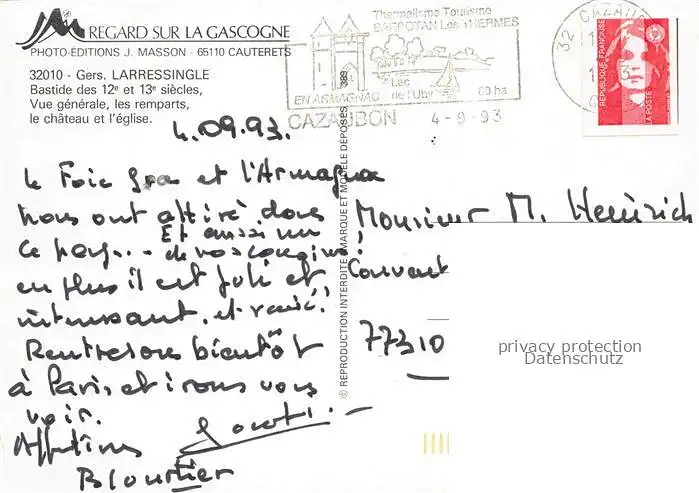 JM REGARD SUR LA GASCOGNE
PHOTO-ÉDITIONS J. MASSON - 65110 CAUTERETS
32010 - Gers. LARRESSINGLE
Bastide des 12e et 13e siècles,
Vue générale, les remparts,
le château et l'église.
Thermalisme Tourisme
BARBOTAN Les THERMES
Lac
de l'Uby 80 ha
EN ARMAGNAC
CAZAUBON 4-9-93
32 CAZAUB
RÉPUBLIQUE FRANÇAISE
LA POSTE
© REPRODUCTION INTERDITE MARQUE ET MODÈLE DÉPOSÉS 389
4.09.93.
Le Foie Gra et l'Armagnac
nous ont attiré dans
Et aussi un
ce pays... de vos cousins!
en plus il est joli et
intéressant, et varié,
Rentrerons bientôt
à Paris, et irons vous
voir.
Blourtier
Monsieur M. Heinrich
Couvent
77310
privacy protection
Datenschutz